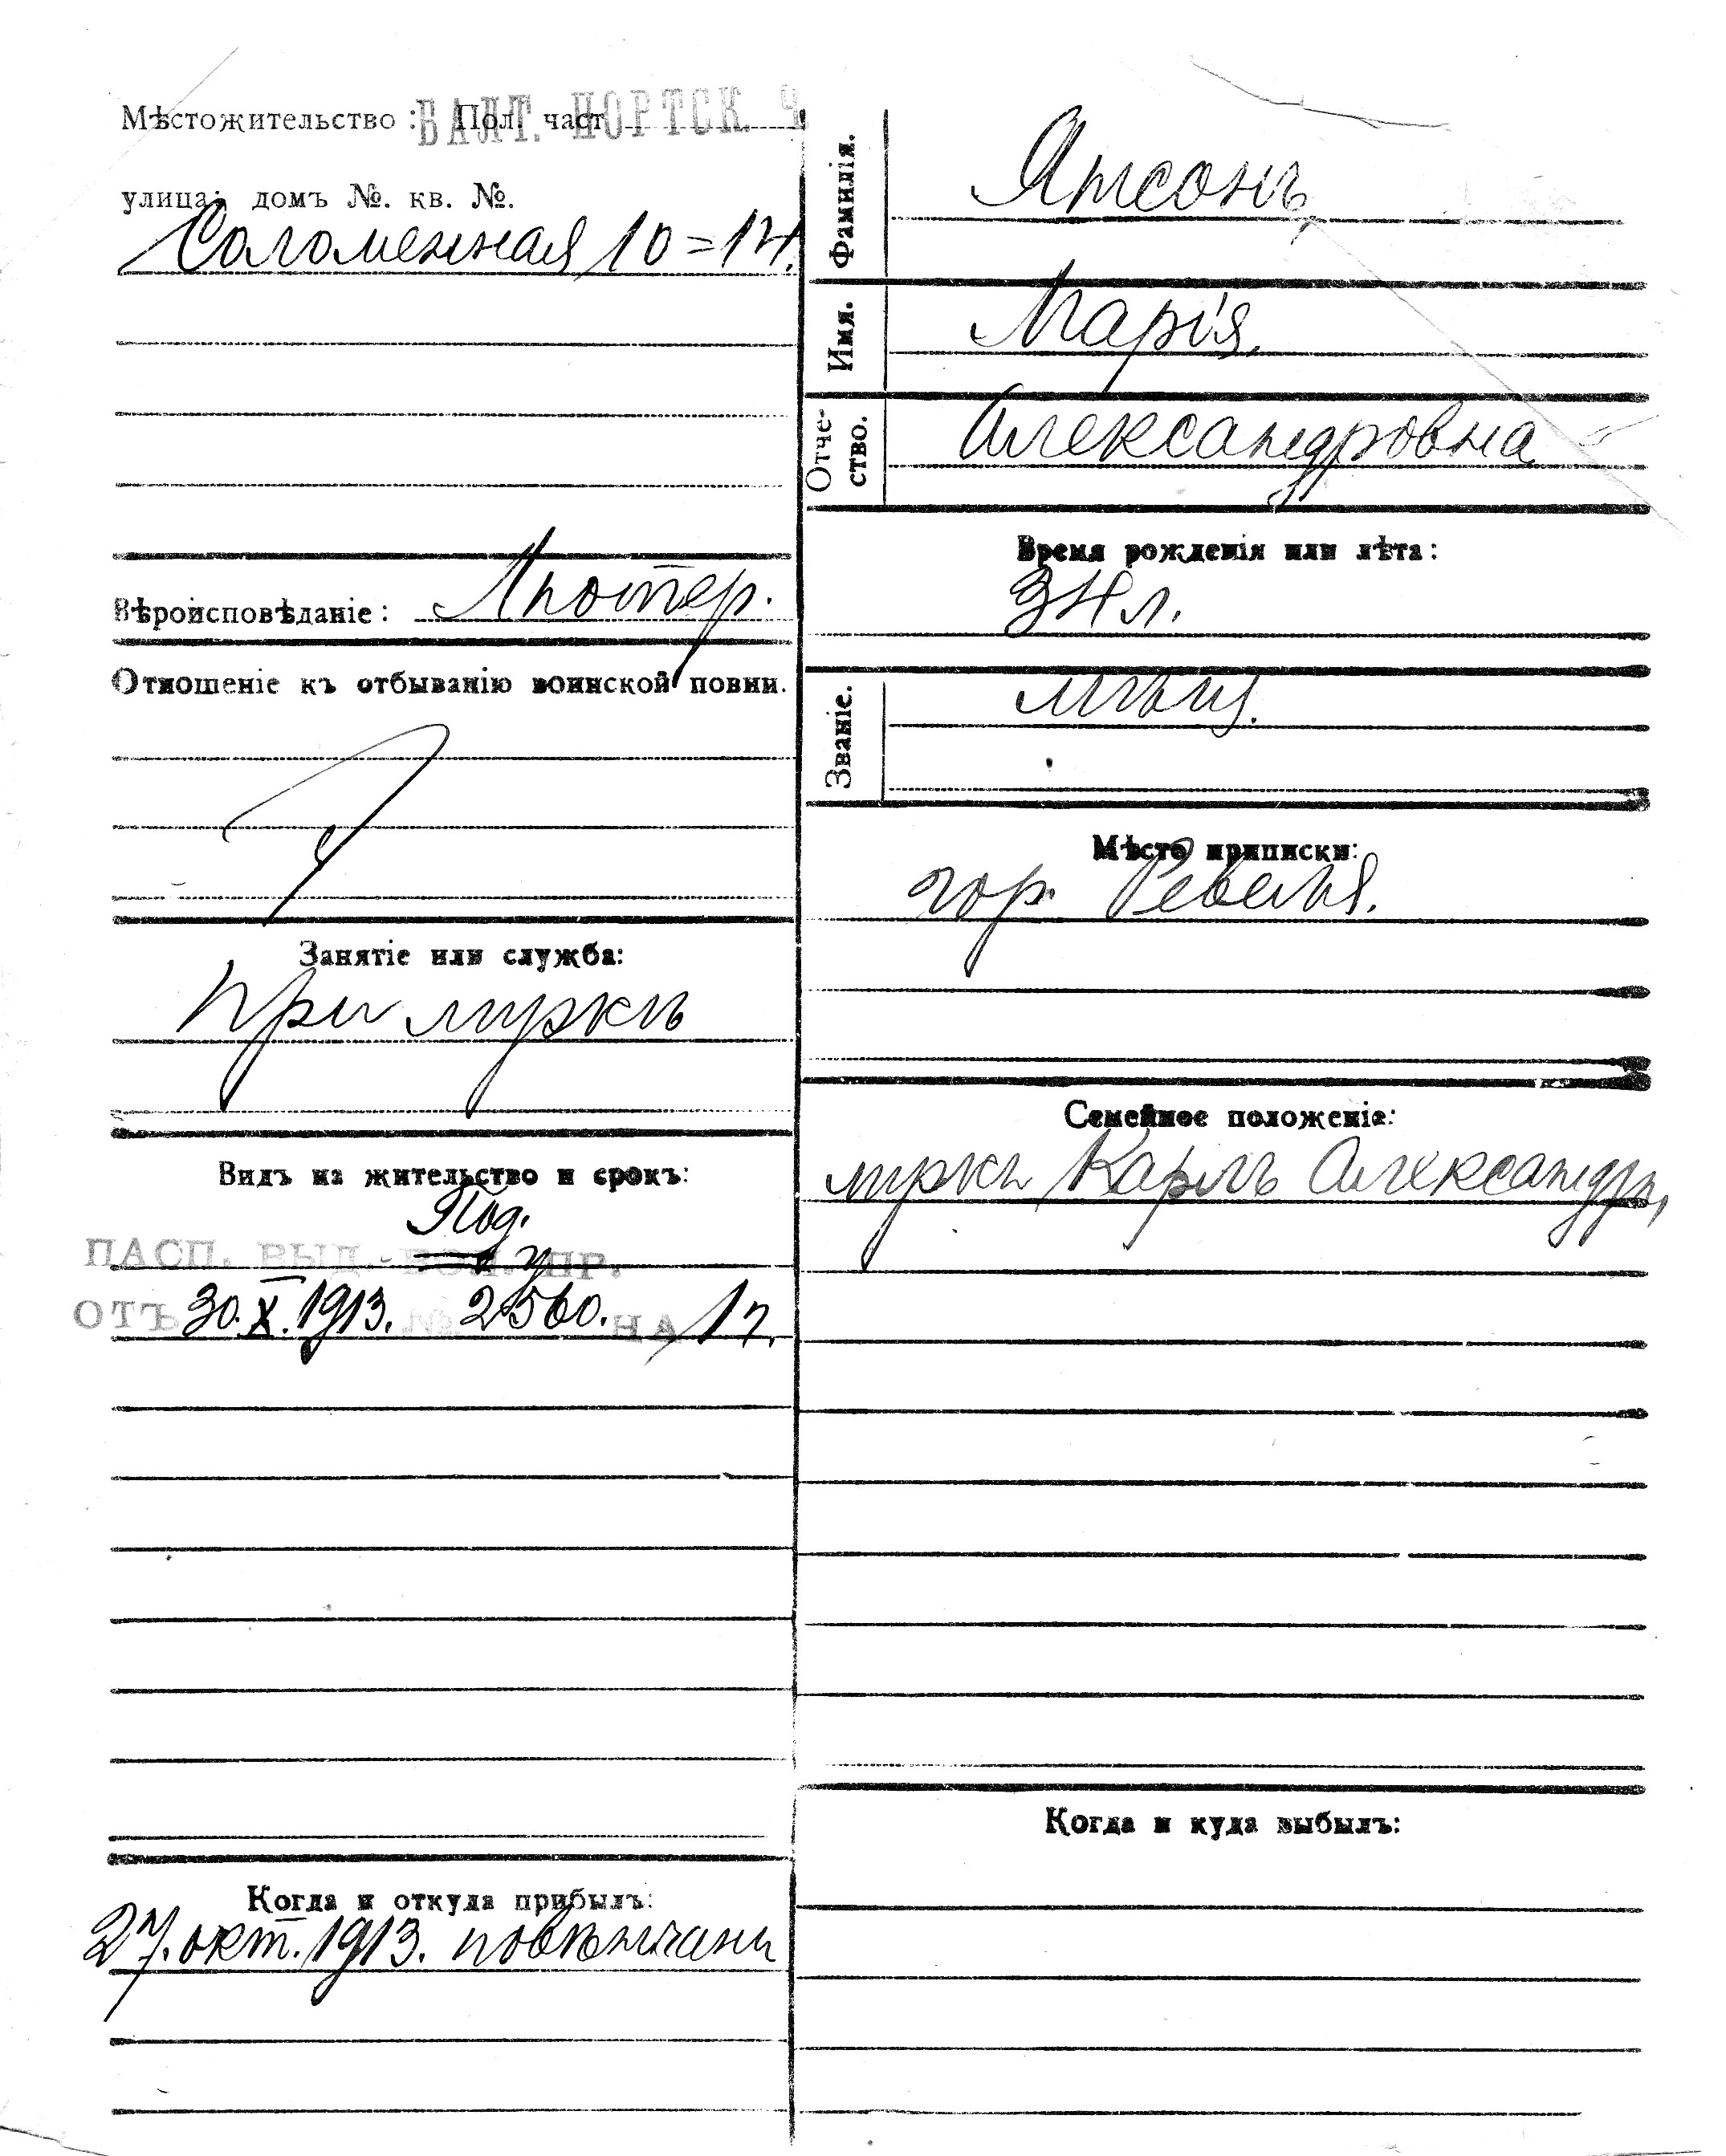 Мѣстожительство: Пол. част
БАЛТ. ПОРТСК. Ч
улица, домъ №. кв. №.
Соломенная 10=14.
Вѣроисповѣданіе: Лютер.
Отношеніе къ отбыванію воинской повин.
Занятіе или служба:
при мужѣ
Видъ на жительство и срокъ:
ПАСП. ВЫД. ПР.
ОТЪ 30.X.1913. № 2560. НА 1 г.
Когда и откуда прибылъ:
27. окт. 1913. повѣнчаны
Фамилія.
Ятсонъ
Имя.
Марія.
Отче-
ство.
Александровна
Время рожденія или лѣта:
34 л.
Званіе.
мѣщ.
Мѣсто приписки:
гор. Ревеля.
Семейное положеніе:
мужъ Карлъ Александр.
Когда и куда выбылъ: